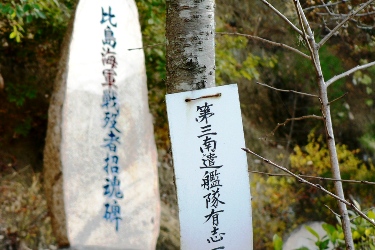 比島海軍戦歿者招魂碑
第三南遣艦隊有志一